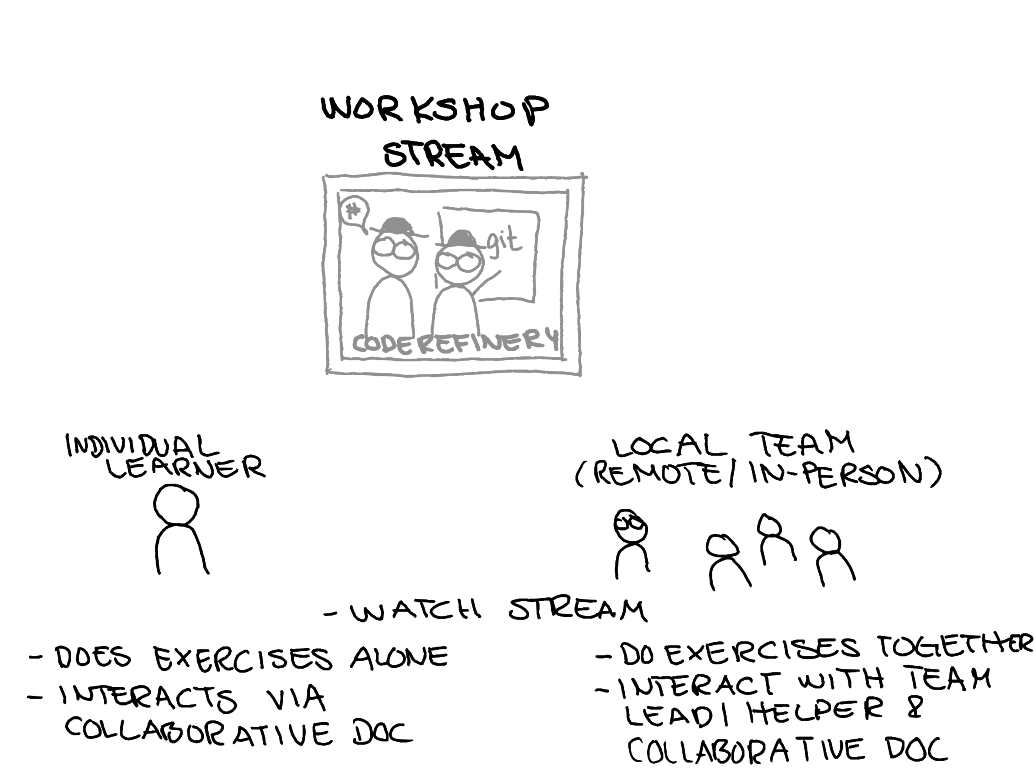 WORKSHOP
STREAM
#
git
CODEREFINERY
INDIVIDUAL
LEARNER
LOCAL TEAM
(REMOTE/IN-PERSON)
- WATCH STREAM
- DOES EXERCISES ALONE
- INTERACTS VIA
COLLABORATIVE DOC
- DO EXERCISES TOGETHER
- INTERACT WITH TEAM
LEAD/HELPER &
COLLABORATIVE DOC